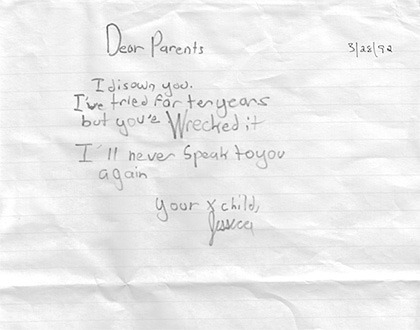 Dear Parents 3/28/92
I disown you.
I've tried for ten years
but you'e Wrecked it
I'll never speak to you
again
your x child,
Jessica